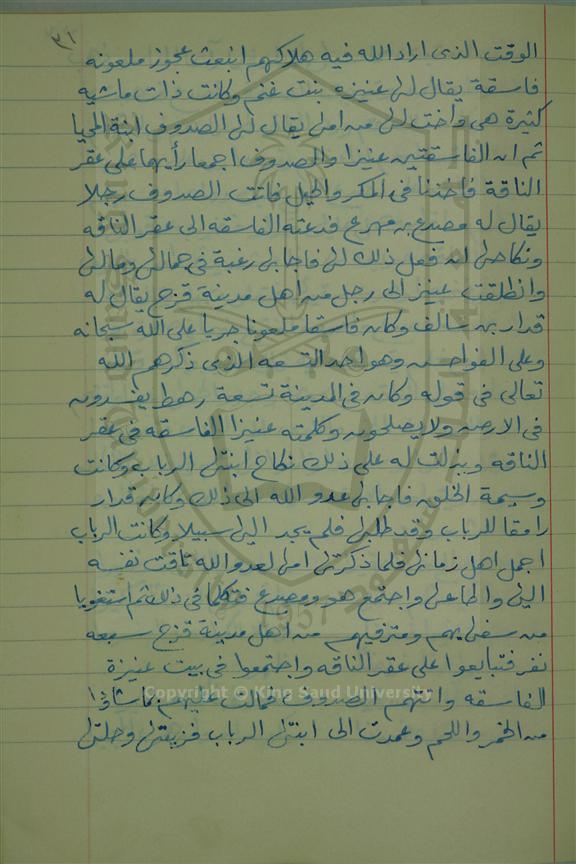 ٣١
الوقت الذى اراد الله فيه هلاكهم انبعث عجوز ملعونه
فاسقة يقال لها عنيزه بنت غنم وكانت ذات ماشيه
كثيرة هى واخت لها من امها يقال لها الصدوف ابنة المحيا
ثم ان الفاسقتين عنيزا والصدوف اجمعا رأيهما على عقر
الناقة فاخذتا فى المكر والحيل فاتت الصدوف رجلا
يقال له مصدع بن مهرع فدعته الفاسقه الى عقر الناقه
ونكاحها ان فعل ذلك لها فاجابها رغبة فى جمالها ومالها
وانطلقت عنيز الى رجل من اهل مدينة قزح يقال له
قدار بن سالف وكان فاسقا ملعونا جريا على الله سبحانه
وعلى الفواحش وهو احد التسعه الذى ذكرهم الله
تعالى فى قوله وكان فى المدينة تسعة رهط يفسدون
فى الارض ولا يصلحون وكلمته عنيزا الفاسقه فى عقر
الناقه وبذلت له على ذلك نكاح ابنتها الرباب وكانت
وسيمة الخلق فاجابها عدو الله الى ذلك وكان قدار
رامقا للرباب وقد طلبها فلم يجد اليها سبيلا وكانت الرباب
اجمل اهل زمانها فلما ذكرتها امها لعدو الله تاقت نفسه
اليها واطاعها واجتمع هو ومصدع فتكلما فى ذلك ثم استغويا
من سفهايهم ومترفيهم من اهل مدينة قزح سبعه
نفر فتبايعوا على عقر الناقه واجتمعوا فى بيت عنيزة
الفاسقه واتتهم الصدوف فمالت عليهم بما شاؤا
من الخمر واللحم وعمدت الى ابنتها الرباب فزينتها وحلتها
Copyright © King Saud University
1957